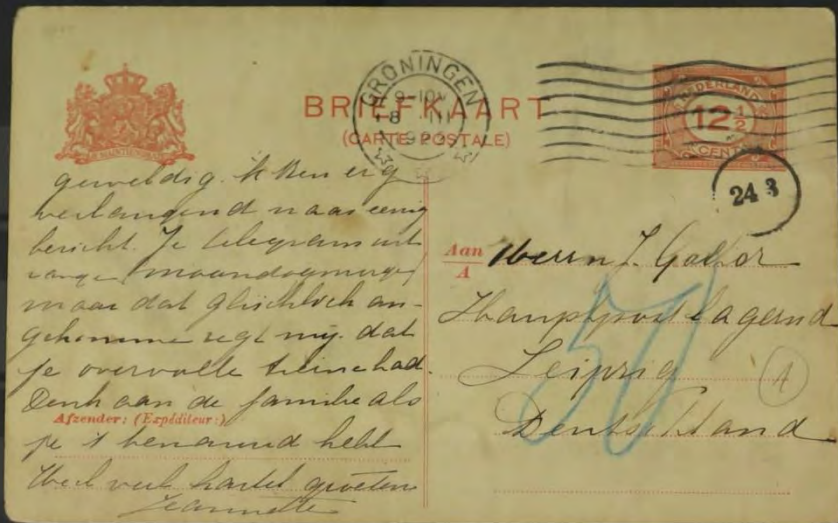 BRIEFKAART
(CARTE POSTALE)
GRONINGEN
NEDERLAND
12½
CENT
24 3
geweldig. Ik ben erg
verlangend naar eenig
bericht. Je telegram ont
vange (maandagmorge)
maar dat glücklich an-
gekomme zegt mij dat
je overvolle treine had.
Denk aan de familie als
Afzender: (Expéditeur:)
je 't benauwd hebt
Veel veel hartel groeten
Jeannette
Aan
A
Herrn J.
Hauptpostlagernd
Leipzig
Deutschland
50
1